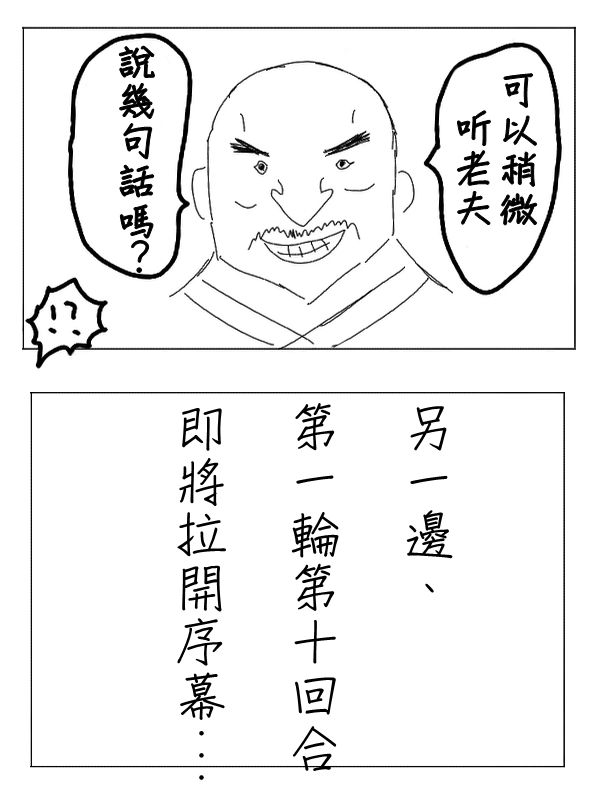 可以稍微
听老夫
說幾句話嗎？
!?
另一邊、
第一輪第十回合
即將拉開序幕…